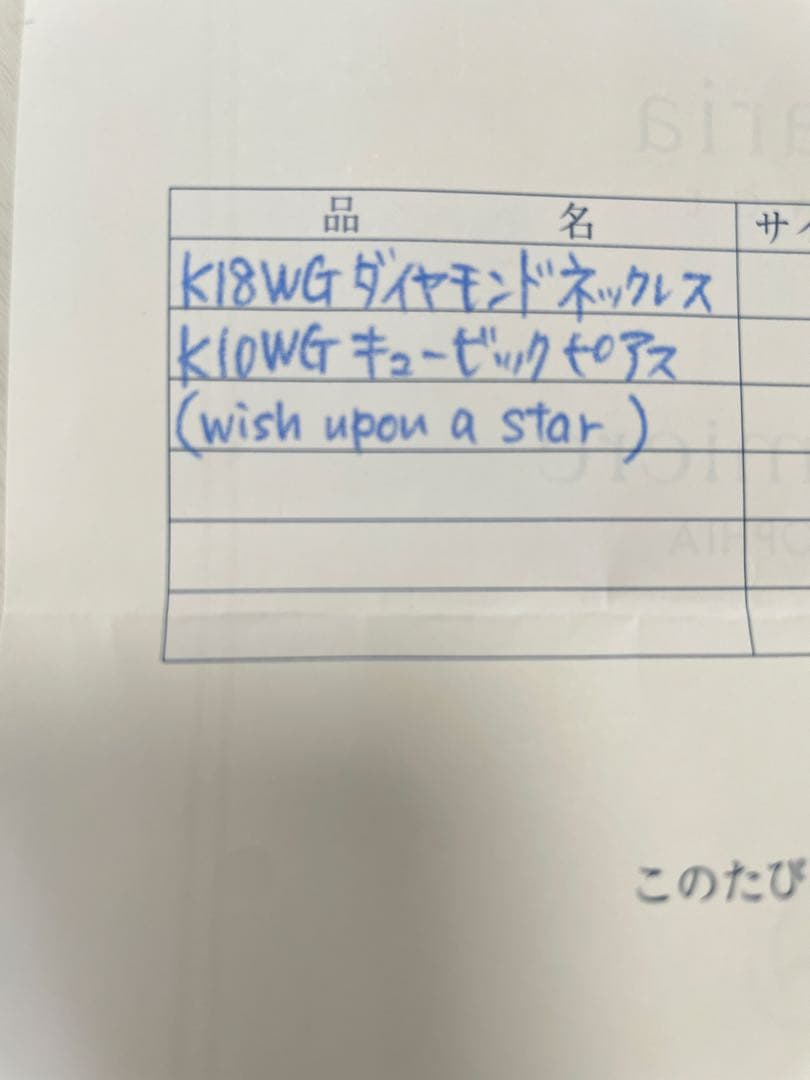 品名 サイ
K18WGダイヤモンドネックレス
K10WGキュービックピアス
(wish upon a star)
このたび